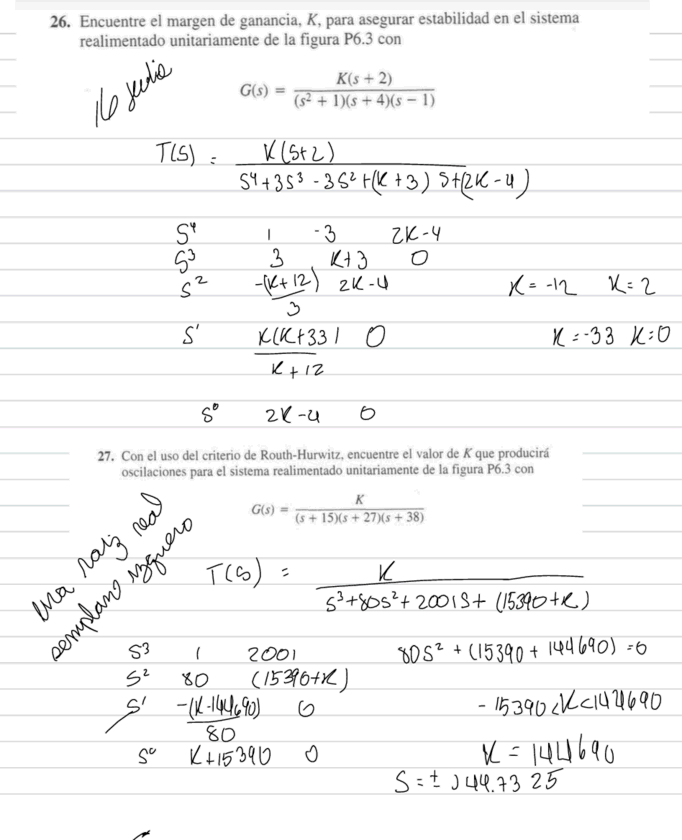 26. Encuentre el margen de ganancia, K, para asegurar estabilidad en el sistema
realimentado unitariamente de la figura P6.3 con
G(s) = K(s + 2) / (s² + 1)(s + 4)(s − 1)
T(S) = K(S+2) / S⁴+3S³-3S²+(K+3)S+(2K-4)
S⁴ 1 -3 2K-4
S³ 3 K+3 0
S² -(K+12)/3 2K-4 K=-12 K=2
S' K(K+33)/K+12 0 K=-33 K=0
S⁰ 2K-4 0
27. Con el uso del criterio de Routh-Hurwitz, encuentre el valor de K que producirá
oscilaciones para el sistema realimentado unitariamente de la figura P6.3 con
G(s) = K / (s + 15)(s + 27)(s + 38)
una raiz real
semplano izquero
T(S) = K / S³+80S²+2001S+(15390+K)
S³ 1 2001 80S²+(15390+144690)=0
S² 80 (15390+K)
S' -(K-144690)/80 0 -15390<K<144690
S⁰ K+15390 0 K=144690
S=±J44.7325